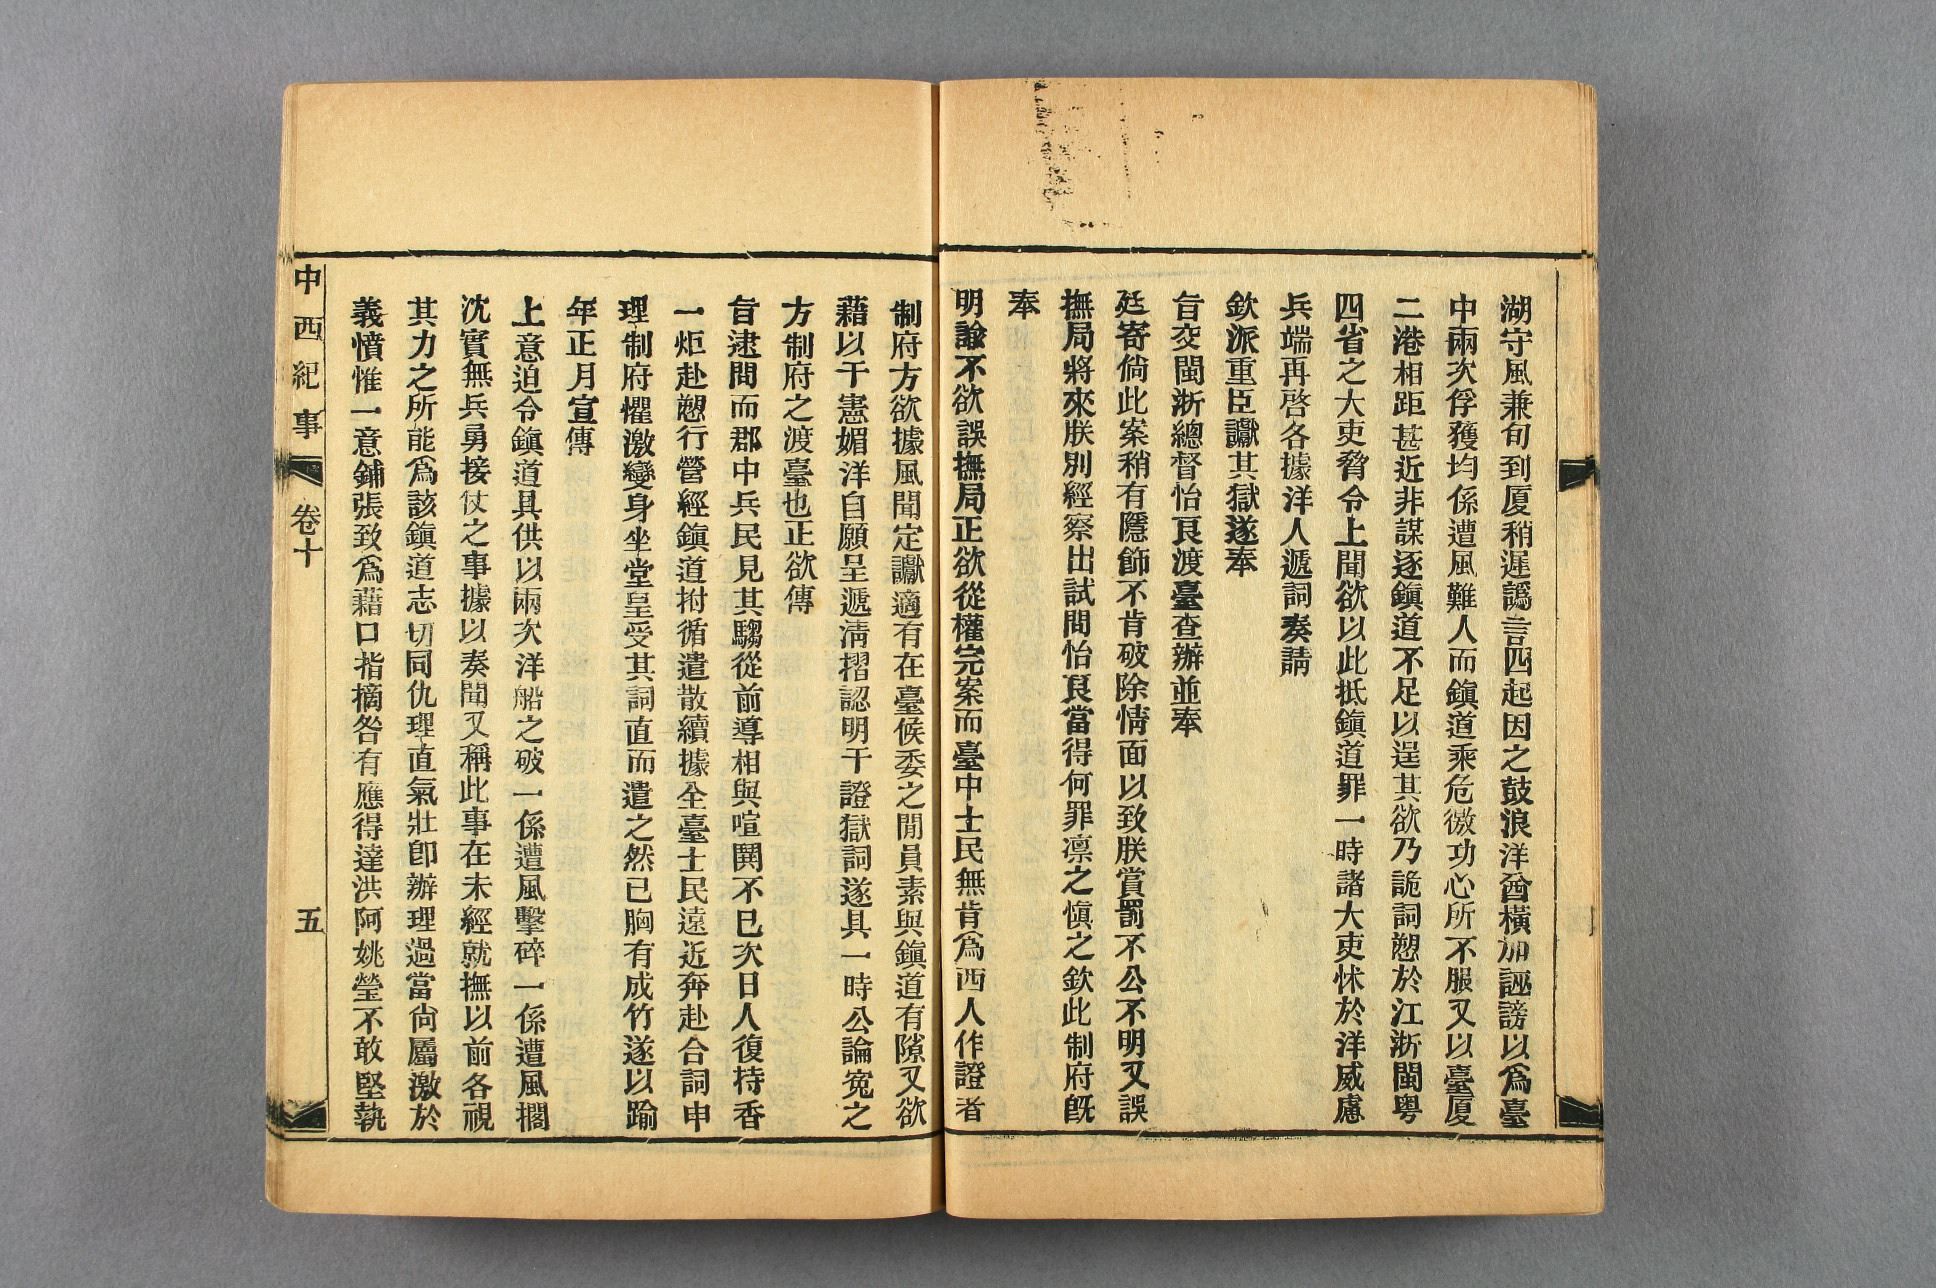 湖守風兼旬到厦稍遲譌言四起因之鼓浪洋酋橫加誣謗以爲臺
中兩次俘獲均係遭風難人而鎭道乘危徼功心所不服又以臺厦
二港相距甚近非謀逐鎭道不足以逞其欲乃詭詞愬於江浙閩粵
四省之大吏脅令上聞欲以此抵鎭道罪一時諸大吏怵於洋威慮
兵端再啓各據洋人遞詞奏請
欽派重臣讞其獄遂奉
旨交閩浙總督怡良渡臺查辦並奉
廷寄倘此案稍有隱飾不肯破除情面以致朕賞罰不公不明又誤
撫局將來朕別經察出試問怡良當得何罪凛之愼之欽此制府旣
奉
明諭不欲誤撫局正欲從權完案而臺中士民無肯爲西人作證者
制府方欲據風聞定讞適有在臺候委之閒員素與鎭道有隙又欲
藉以干憲媚洋自願呈遞淸摺認明干證獄詞遂具一時公論寃之
方制府之渡臺也正欲傳
旨逮問而郡中兵民見其騶從前導相與喧鬨不已次日人復持香
一炬赴愬行營經鎭道拊循遣散續據全臺士民遠近奔赴合詞申
理制府懼激變身坐堂皇受其詞直而遣之然已胸有成竹遂以踰
年正月宣傳
上意迫令鎭道具供以兩次洋船之破一係遭風擊碎一係遭風擱
沈實無兵勇接仗之事據以奏聞又稱此事在未經就撫以前各視
其力之所能爲該鎭道志切同仇理直氣壯卽辦理過當尙屬激於
義憤惟一意鋪張致爲藉口指摘咎有應得達洪阿姚瑩不敢堅執
中西紀事
卷十
五